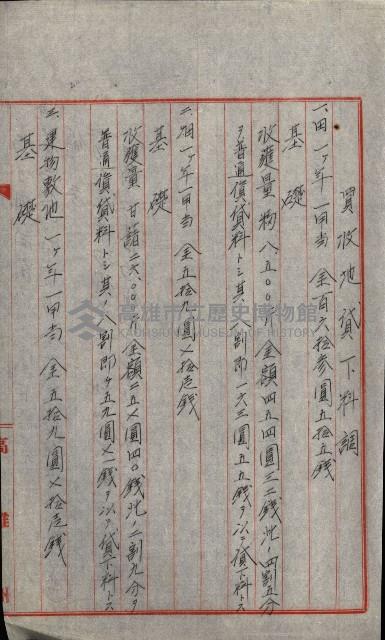 買收地貸下料調
一、田 一ヶ年一甲当 金百六拾參圓五拾五錢
基礎
收穫量 籾八、五〇〇斤 金額四五四圓三二錢此ノ四割五分
ヲ普通賃貸料トシ其ノ八割即一六三圓五五錢ヲ以テ貸下料トス
二、畑 一ヶ年一甲当 金五拾九圓〆拾壱錢
基礎
收穫量 甘藷二六、〇〇〇斤 金額二五〆圓四〇錢此ノ二割九分ヲ
普通賃貸料トシ其ノ八割即チ五九圓〆一錢ヲ以テ貸下料トス
三、建物敷地 一ヶ年一甲当 金五拾九圓〆拾壱錢
基礎
高雄州
高雄市立歷史博物館
KAOHSIUNG MUSEUM OF HISTORY